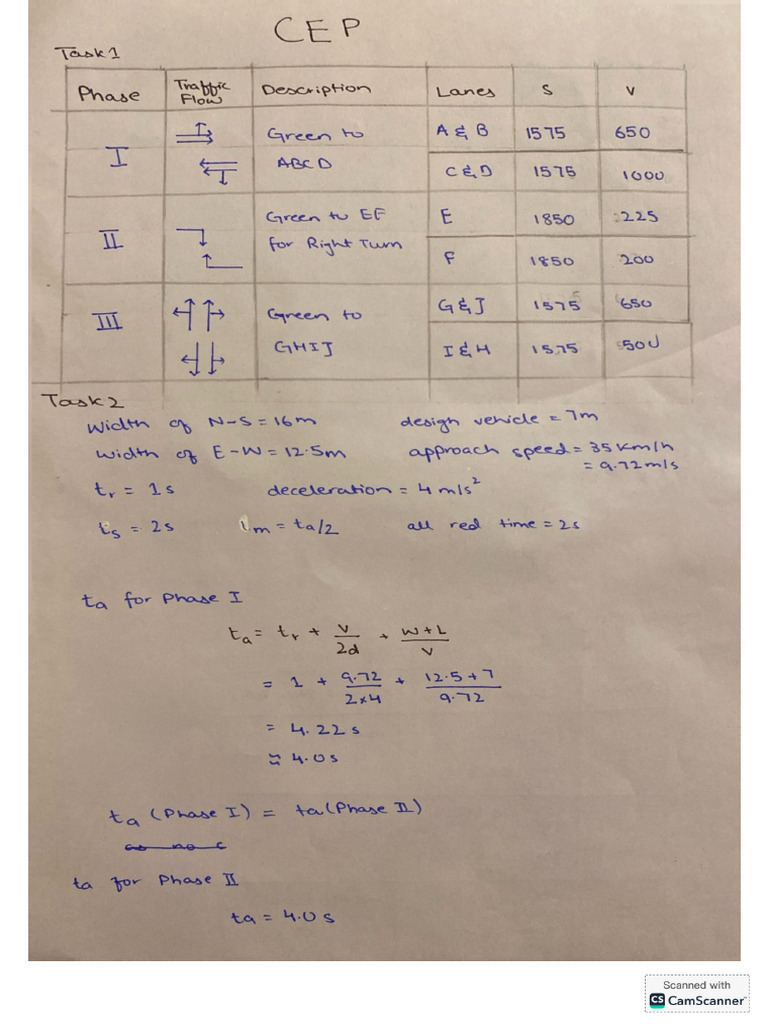 CEP
Task 1
Phase Traffic Flow Description Lanes S V
I Green to ABCD A & B 1575 650
C & D 1575 1000
II Green to EF for Right Turn E 1850 225
F 1850 200
III Green to GHIJ G & J 1575 650
I & H 1575 500
Task 2
Width of N-S = 16m design vehicle = 7m
width of E-W = 12.5m approach speed = 35 km/h
= 9.72 m/s
tr = 1s deceleration = 4 m/s²
ts = 2s lm = ta/2 all red time = 2s
ta for Phase I
ta = tr + V/2d + W+L/V
= 1 + 9.72/2x4 + 12.5+7/9.72
= 4.22 s
≈ 4.0s
ta (Phase I) = ta (Phase II)
ta for Phase II
ta = 4.0 s
Scanned with
CS CamScanner